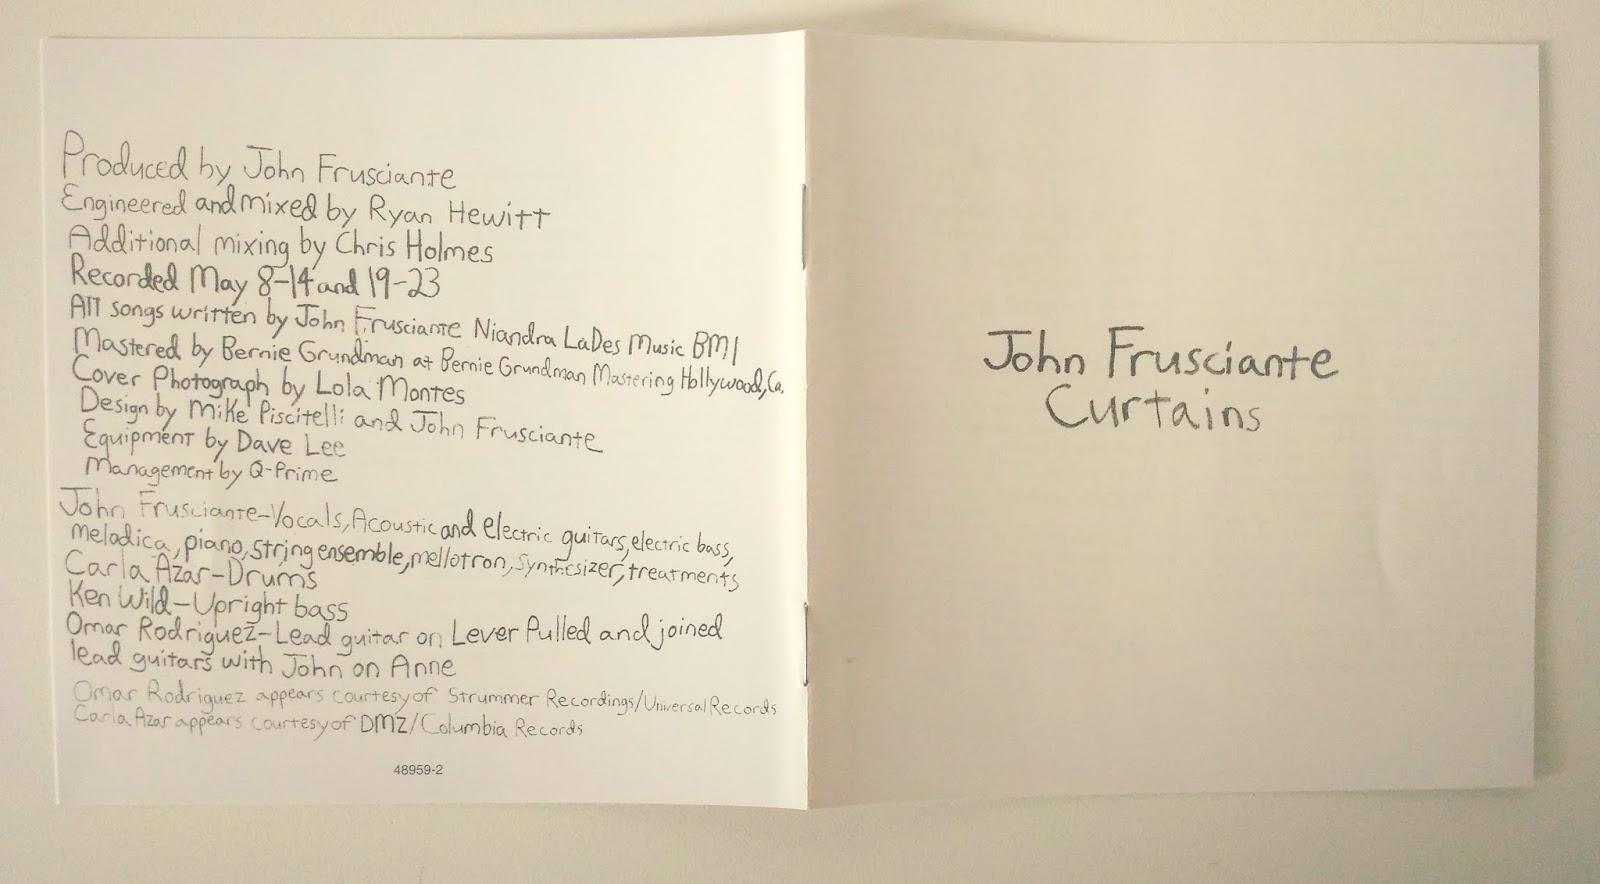 Produced by John Frusciante
Engineered and mixed by Ryan Hewitt
Additional mixing by Chris Holmes
Recorded May 8-14 and 19-23
All songs written by John Frusciante Niandra LaDes Music BMI
Mastered by Bernie Grundman at Bernie Grundman Mastering Hollywood, Ca.
Cover Photograph by Lola Montes
Design by Mike Piscitelli and John Frusciante
Equipment by Dave Lee
Management by Q-Prime
John Frusciante-Vocals, Acoustic and electric guitars, electric bass,
melodica, piano, string ensemble, mellotron, synthesizer, treatments
Carla Azar-Drums
Ken Wild-Upright bass
Omar Rodriguez-Lead guitar on Lever Pulled and joined
lead guitars with John on Anne
Omar Rodriguez appears courtesy of Strummer Recordings/Universal Records
Carla Azar appears courtesy of DMZ/Columbia Records
48959-2
John Frusciante
Curtains